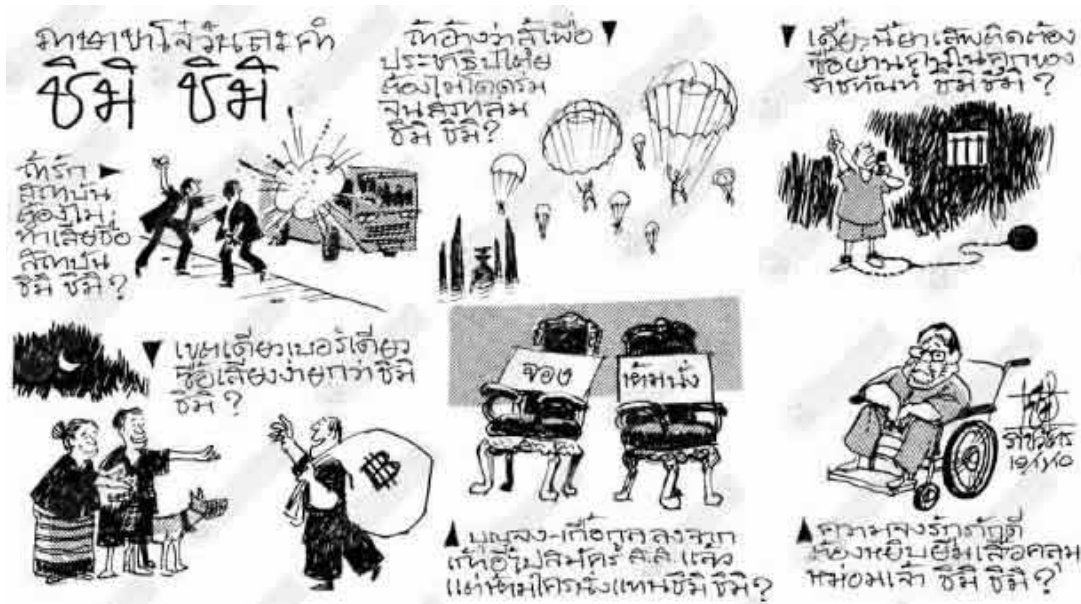 ภาษาขาโจ๋วันละคำ
ชิมิ ชิมิ
ถ้ารัก
สถาบัน
ต้องไม่
ทำเสียชื่อ
สถาบัน
ชิมิ ชิมิ?
ถ้าอ้างว่าสู้เพื่อ
ประชาธิปไตย
ต้องไม่โดดร่ม
จนสภาล่ม
ชิมิ ชิมิ?
เดี๋ยวนี้ยาเสพติดต้อง
ซื้อผ่านคนในคุกของ
ราชทัณฑ์ ชิมิ ชิมิ?
เขตเดียวเบอร์เดียว
ซื้อเสียงง่ายกว่า ชิมิ
ชิมิ?
฿
จอง
ห้ามนั่ง
บุญจง-เกื้อกูล ลงจาก
เก้าอี้ไปสมัคร ส.ส. แล้ว
แต่ห้ามใครนั่งแทน ชิมิ ชิมิ?
ราชวัตร
ความจงรักภักดี
ต้องหยิบยืมเสื้อคลุม
หม่อมเจ้า ชิมิ ชิมิ?